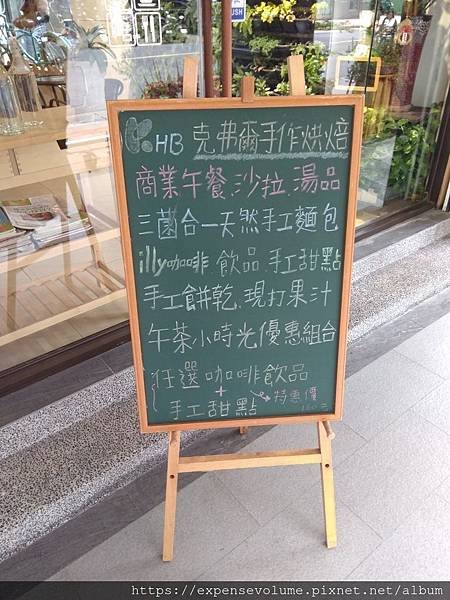 PUSH
K.HB 克弗爾手作烘焙
商業午餐.沙拉.湯品
三菌合一天然手工麵包
illy咖啡.飲品.手工甜點
手工餅乾.現打果汁
午茶小時光優惠組合
任選咖啡飲品
+
手工甜點
特惠價
https://expensevolume.pixnet.net/album